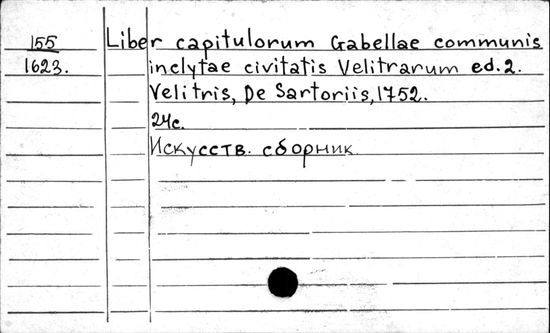 155
1623.
Liber capitulorum Gabellae communis
inclytae civitatis Velitrarum ed. 2.
Velitris, De Sartoriis, 1752.
24с.
Искусств. сборник.